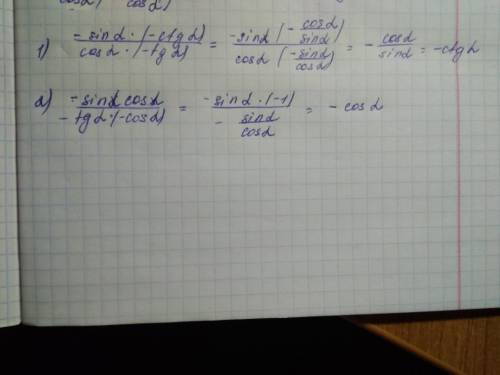 cosα) cosα)
1) -sinα·(-ctgα) / cosα·(-tgα) = -sinα(-cosα/sinα) / cosα(-sinα/cosα) = -cosα/sinα = -ctgα
2) -sinα cosα / -tgα·(-cosα) = -sinα·(-1) / -sinα/cosα = -cosα